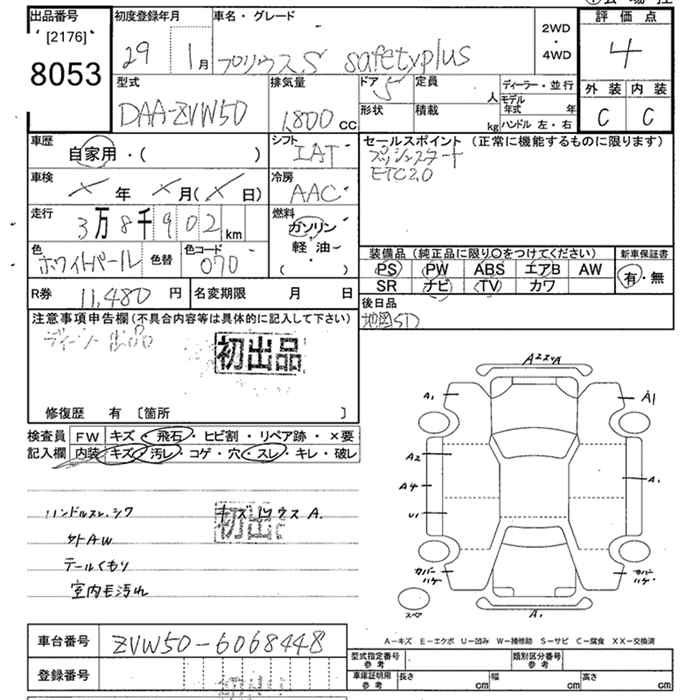 出品番号 初度登録年月 車名・グレード 評価点
[2176] 29 1月 プリウスS safetyplus 2WD ・ 4WD 4
8053
型式 排気量 ドア 定員 ディーラー・並行 外装 内装
DAA-ZVW50 1,800 cc 5 人 モデル年式 年 C C
形状 積載 kg ハンドル 左・右
車歴 シフト セールスポイント (正常に機能するものに限ります)
自家用・( ) IAT プッシュスタート
ETC2.0
車検 冷房
× 年 × 月(× 日) AAC
走行 燃料
3万8千902 km ガソリン
軽油・
( )
色 色替 色コード 装備品(純正品に限り○をつけてください) 新車保証書
ホワイトパール 070 PS PW ABS エアB AW 有・無
SR ナビ TV カワ
R券 11,480 円 名変期限 月 日 後日品
地図SD
注意事項申告欄(不具合内容等は具体的に記入して下さい)
初出品
修復歴 有 〔箇所 〕
検査員 FW キズ・飛石・ヒビ割・リペア跡・×要
記入欄 内装 キズ・汚レ・コゲ・穴・スレ・キレ・破レ
ハンドルスレ、シワ
サトAW
テールくもり
室内毛汚れ
初出
A1 A1
A2
A4 A1
U1
カバーハゲ カバーハゲ
スペア A1
A-キズ E-エクボ U-凹み W-補修跡 S-サビ C-腐食 XX-交換済
車台番号 ZVW50-6068448
登録番号
型式指定番号 参考 類別区分番号 参考
車庫証明用 参考 長さ cm 幅 cm 高さ cm